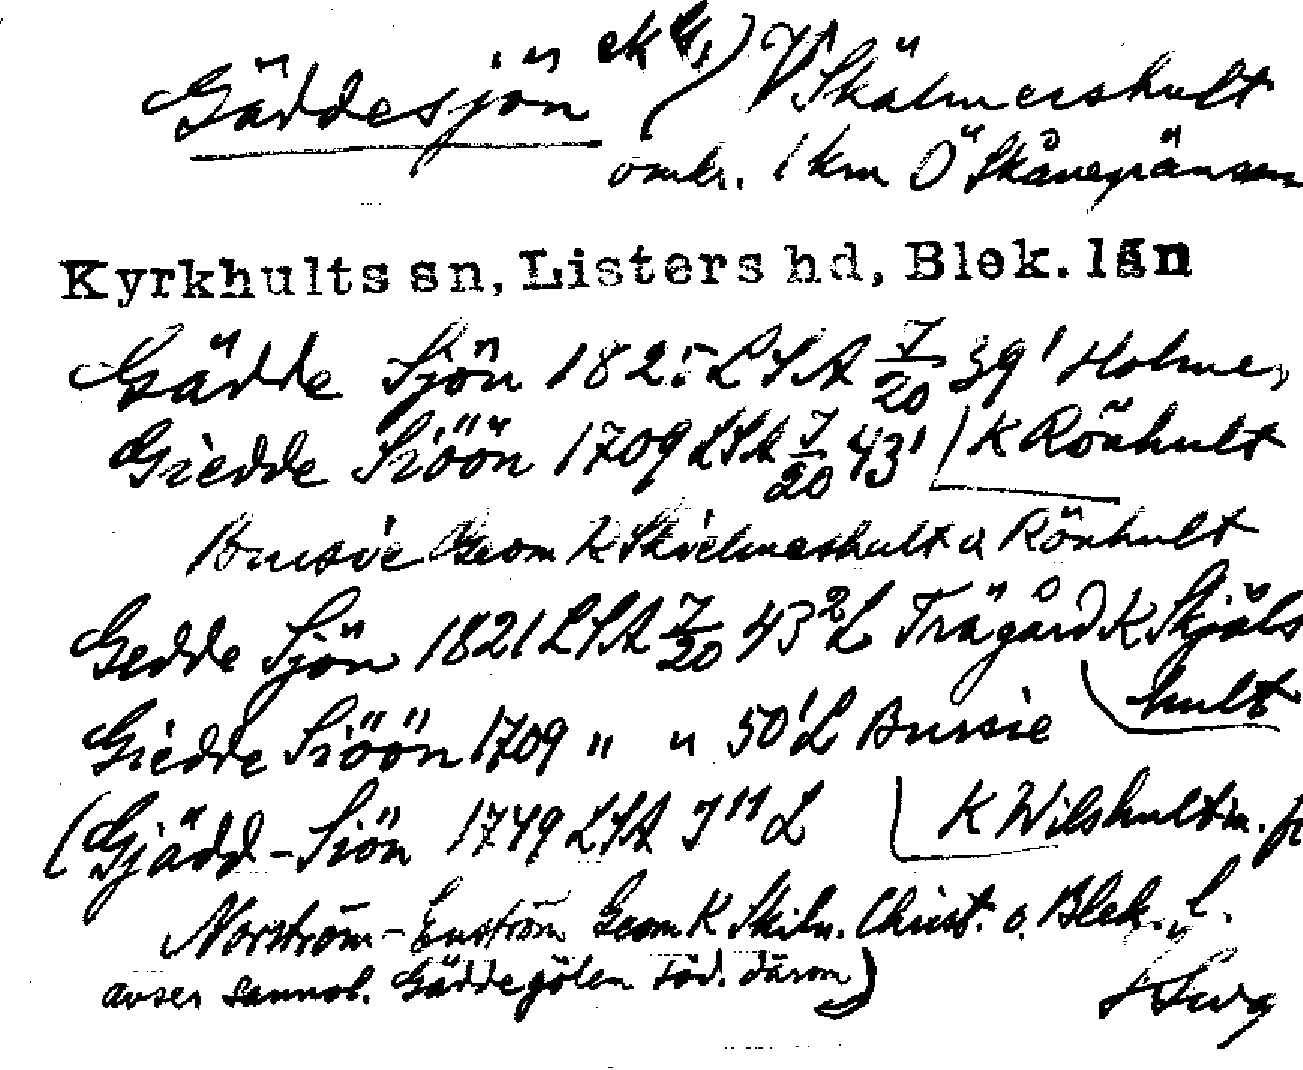 Gäddesjön ek V Skälmershult
omkr. 1 km Ö Skånegränsen
Kyrkhults sn, Listers hd, Blek. län
Gädde Sjön 1825 LSA 7/20 39¹ Holmer
Giedde Siöön 1709 LSA 7/20 43¹ K Rönhult
Bussie Geom K Skielmershult o Rönhult
Gedde Sjön 1821 LSA 7/20 43² L Trägård K Skjäls
hult
Giedde Siöön 1709 " " 50¹ L Bussie
(Gjädd-Siön 1749 LSA J11 L K Wilshult m. fl
Norström-Enström Geom K Skiln. Christ. o. Blek. L.
avser sannol. Gäddegölen söd. därom)